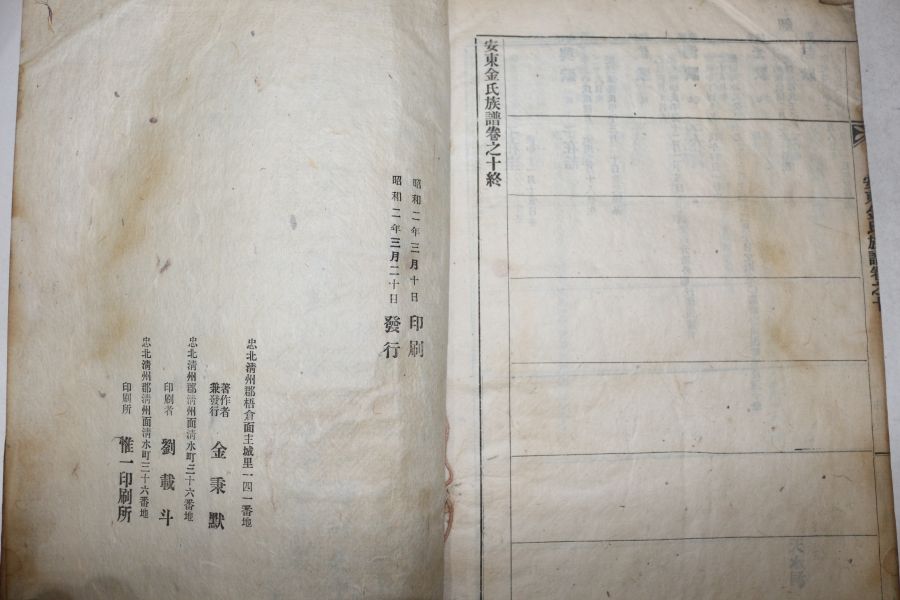 安東金氏族譜卷之十終
安東金氏族譜卷之十
昭和二年三月十日 印刷
昭和二年三月二十日 發行
忠北清州郡梧倉面主城里一四一番地
著作者兼發行 金秉默
忠北清州郡清州面清水町三十六番地
印刷者 劉載斗
忠北清州郡清州面清水町三十六番地
印刷所 惟一印刷所